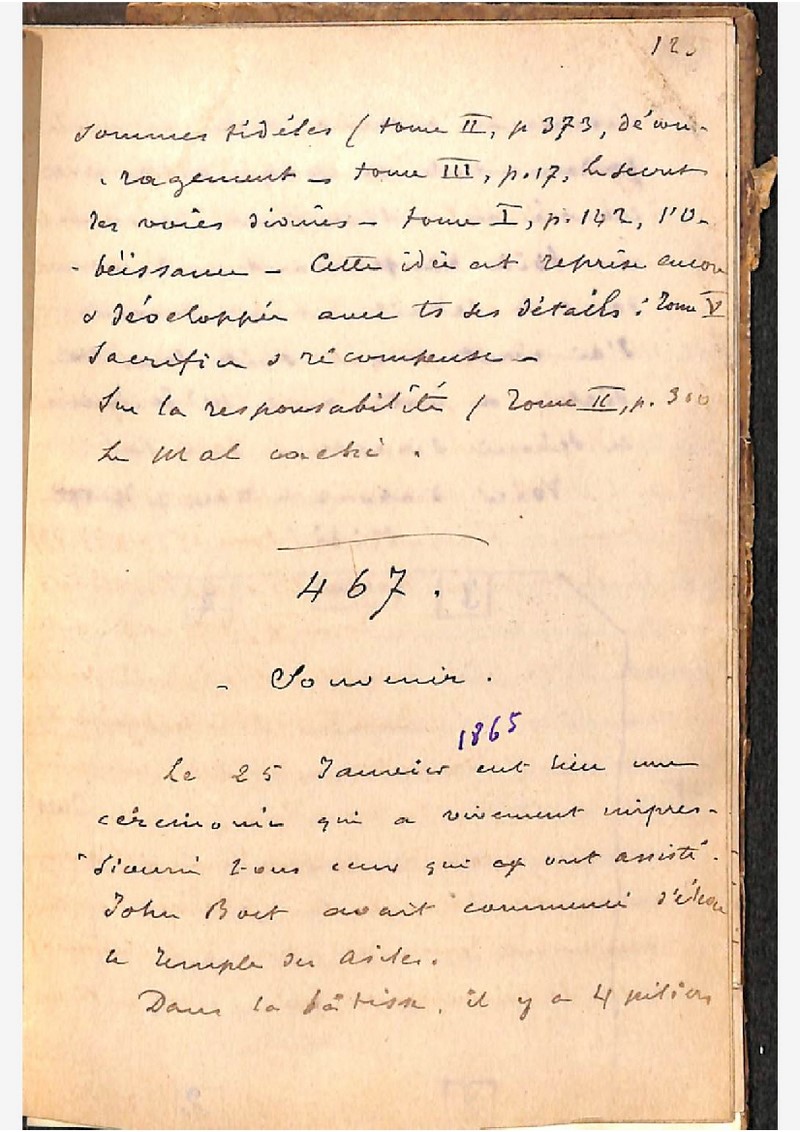 12
sommes fidèles ( tome II, p 373, décou-
-ragement – tome III, p. 17, le secret
des voies divines – tome I, p. 142, l'O-
-béissance – Cette idée est reprise encore
& développée avec ts ses détails : Tome V
Sacrifice & récompense –
Sur la responsabilité / Tome II, p. 300
Le Mal caché .
467 .
- Souvenir .
1865
Le 25 Janvier eut lieu une
cérémonie qui a vivement impres-
-sionné tous ceux qui y ont assisté.
John Bost avait commencé d'élever
le Temple des Asiles.
Dans la bâtisse, il y a 4 piliers